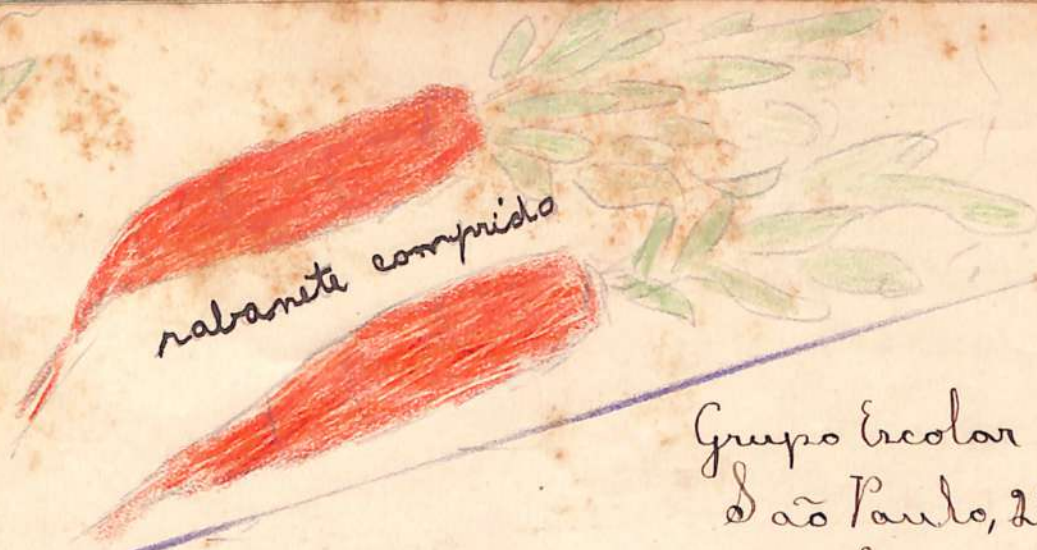 rabanete comprido
Grupo Escolar
São Paulo, 2